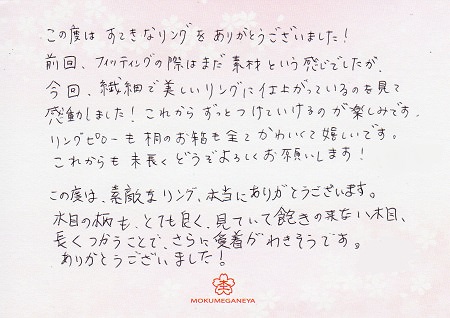 この度は すてきなリングを ありがとうございました!
前回、フィッティングの際はまだ素材という感じでしたが、
今回、繊細で美しいリングに仕上がっているのを見て
感動しました!これからずっとつけていけるのが楽しみです。
リングピローも桐のお箱も全てかわいくて嬉しいです。
これからも末長くどうぞよろしくお願いします!
この度は、素敵なリング、本当にありがとうございます。
木目の柄も、とても良く、見ていて飽きの来ない木目、
長くつかうことで、さらに愛着がわきそうです。
ありがとうございました!
MOKUMEGANEYA